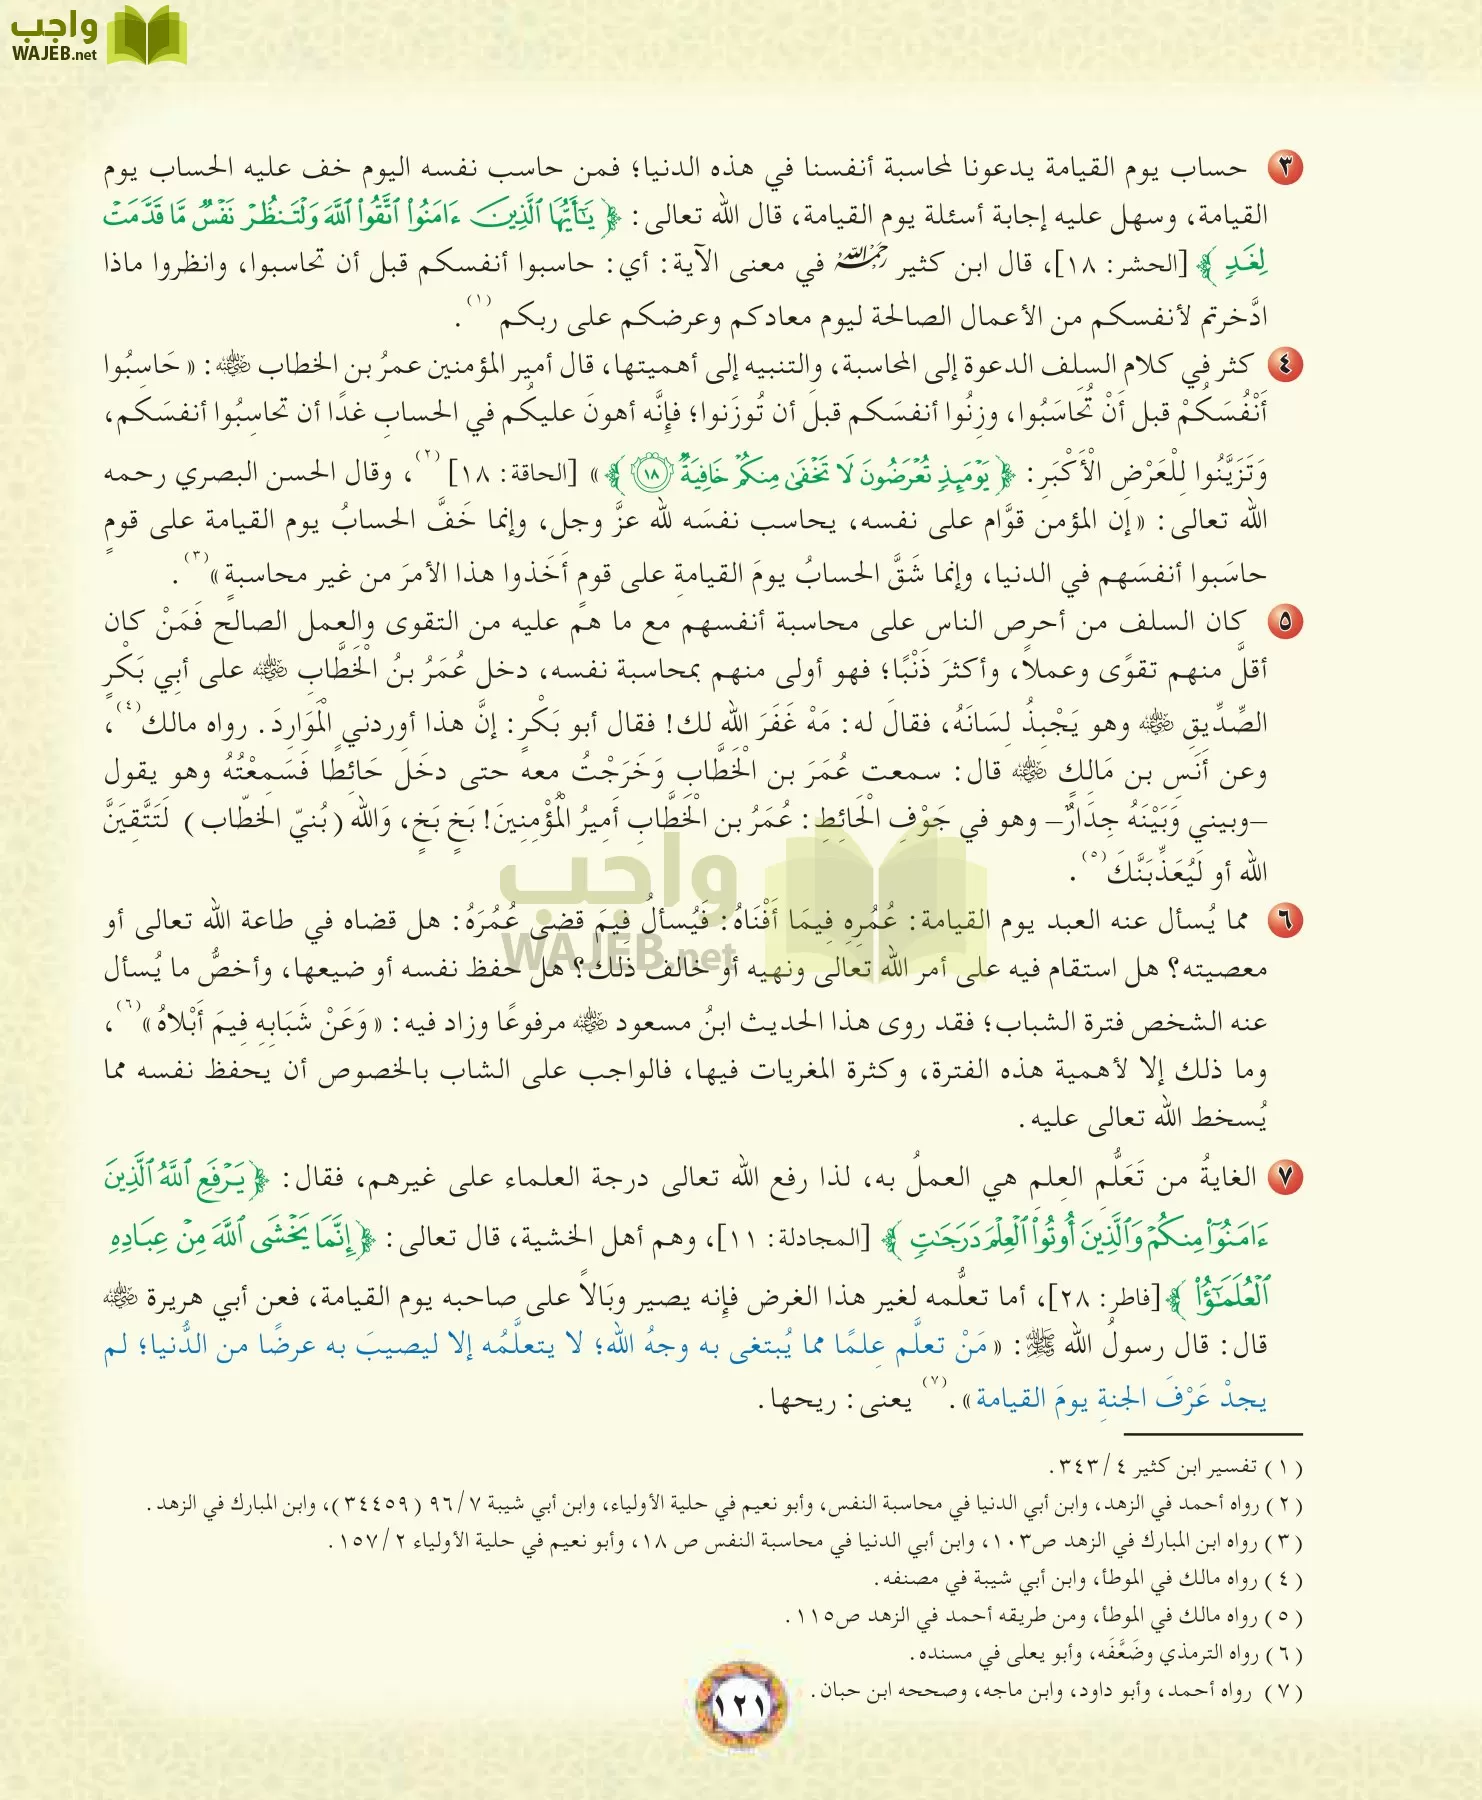 واجب
WAJEB.net
٣ حساب يوم القيامة يدعونا لمحاسبة أنفسنا في هذه الدنيا؛ فمن حاسب نفسه اليوم خف عليه الحساب يوم
القيامة، وسهل عليه إجابة أسئلة يوم القيامة، قال الله تعالى: ﴿يَٰٓأَيُّهَا ٱلَّذِينَ ءَامَنُواْ ٱتَّقُواْ ٱللَّهَ وَلۡتَنظُرۡ نَفۡسٞ مَّا قَدَّمَتۡ
لِغَدٖ﴾ [الحشر: ١٨]، قال ابن كثير رحمه الله في معنى الآية: أي: حاسبوا أنفسكم قبل أن تحاسبوا، وانظروا ماذا
ادَّخرتم لأنفسكم من الأعمال الصالحة ليوم معادكم وعرضكم على ربكم (١).
٤ كثر في كلام السلف الدعوة إلى المحاسبة، والتنبيه إلى أهميتها، قال أمير المؤمنين عمرُ بن الخطاب رضي الله عنه: «حَاسِبُوا
أَنْفُسَكُمْ قبل أَنْ تُحَاسَبُوا، وزِنُوا أنفسَكم قبلَ أن تُوزَنوا؛ فإنَّه أهونَ عليكُم في الحسابِ غدًا أن تحاسِبُوا أنفسَكم،
وَتَزَيَّنُوا لِلْعَرْضِ الْأَكْبَرِ: ﴿يَوۡمَئِذٖ تُعۡرَضُونَ لَا تَخۡفَىٰ مِنكُمۡ خَافِيَةٞ ١٨﴾» [الحاقة: ١٨] (٢)، وقال الحسن البصري رحمه
الله تعالى: «إن المؤمن قوَّام على نفسه، يحاسب نفسَه لله عزَّ وجل، وإنما خَفَّ الحسابُ يوم القيامة على قومٍ
حاسَبوا أنفسَهم في الدنيا، وإنما شَقَّ الحسابُ يومَ القيامةِ على قومٍ أَخَذوا هذا الأمرَ من غير محاسبةٍ» (٣).
٥ كان السلف من أحرص الناس على محاسبة أنفسهم مع ما هم عليه من التقوى والعمل الصالح فَمَنْ كان
أقلَّ منهم تقوًى وعملاً، وأكثرَ ذَنْبًا؛ فهو أولى منهم بمحاسبة نفسه، دخل عُمَرُ بنُ الْخَطَّابِ رضي الله عنه على أبِي بَكْرٍ
الصِّدِّيقِ رضي الله عنه وهو يَجْبِذُ لِسَانَهُ، فقالَ له: مَهْ غَفَرَ الله لك! فقال أبو بَكْرٍ: إنَّ هذا أوردني الْمَوَارِدَ. رواه مالك (٤)،
وعن أَنَسِ بن مَالِكٍ رضي الله عنه قال: سمعت عُمَرَ بن الْخَطَّابِ وَخَرَجْتُ معه حتى دخَل حَائِطًا فَسَمِعْتُهُ وهو يقول
–وبيني وَبَيْنَهُ جِدَارٌ– وهو في جَوْفِ الْحَائِطِ: عُمَرُ بن الْخَطَّابِ أمِيرُ الْمُؤْمِنِينَ! بَخٍ بَخٍ، وَالله (بُنيّ الخطّاب) لَتَتَّقِيَنَّ
الله أو لَيُعَذِّبَنَّكَ (٥).
٦ مما يُسأل عنه العبد يوم القيامة: عُمُرِهِ فِيمَا أَفْنَاهُ: فَيُسألُ فِيمَ قضى عُمُرَهُ: هل قضاه في طاعة الله تعالى أو
معصيته؟ هل استقام فيه على أمر الله تعالى ونهيه أو خالف ذلك؟ هل حفظ نفسه أو ضيعها، وأخصُّ ما يُسأل
عنه الشخص فترة الشباب؛ فقد روى هذا الحديث ابنُ مسعود رضي الله عنه مرفوعًا وزاد فيه: «وَعَنْ شَبَابِهِ فِيمَ أَبْلاهُ» (٦)،
وما ذلك إلا لأهمية هذه الفترة، وكثرة المغريات فيها، فالواجب على الشاب بالخصوص أن يحفظ نفسه مما
يُسخط الله تعالى عليه.
٧ الغايةُ من تَعَلُّمِ العِلمِ هي العملُ به، لذا رفع الله تعالى درجة العلماء على غيرهم، فقال: ﴿يَرۡفَعِ ٱللَّهُ ٱلَّذِينَ
ءَامَنُواْ مِنكُمۡ وَٱلَّذِينَ أُوتُواْ ٱلۡعِلۡمَ دَرَجَٰتٖ﴾ [المجادلة: ١١]، وهم أهل الخشية، قال تعالى: ﴿إِنَّمَا يَخۡشَى ٱللَّهَ مِنۡ عِبَادِهِ
ٱلۡعُلَمَٰٓؤُاْ﴾ [فاطر: ٢٨]، أما تعلُّمه لغير هذا الغرض فإنه يصير وبَالاً على صاحبه يوم القيامة، فعن أبي هريرة رضي الله عنه
قال: قال رسولُ الله ﷺ: «مَنْ تعلَّم عِلمًا مما يُبتغى به وجهُ الله؛ لا يتعلَّمُه إلا ليصيبَ به عرضًا من الدُّنيا؛ لم
يجدْ عَرْفَ الجنةِ يومَ القيامة». (٧) يعنى: ريحها.
واجب
WAJEB.net
(١) تفسير ابن كثير ٤/ ٣٤٣.
(٢) رواه أحمد في الزهد، وابن أبي الدنيا في محاسبة النفس، وأبو نعيم في حلية الأولياء، وابن أبي شيبة ٧/ ٩٦ (٣٤٤٥٩)، وابن المبارك في الزهد.
(٣) رواه ابن المبارك في الزهد ص١٠٣، وابن أبي الدنيا في محاسبة النفس ص ١٨، وأبو نعيم في حلية الأولياء ٢/ ١٥٧.
(٤) رواه مالك في الموطأ، وابن أبي شيبة في مصنفه.
(٥) رواه مالك في الموطأ، ومن طريقه أحمد في الزهد ص١١٥.
(٦) رواه الترمذي وضَعَّفَه، وأبو يعلى في مسنده.
(٧) رواه أحمد، وأبو داود، وابن ماجه، وصححه ابن حبان.
١٢١